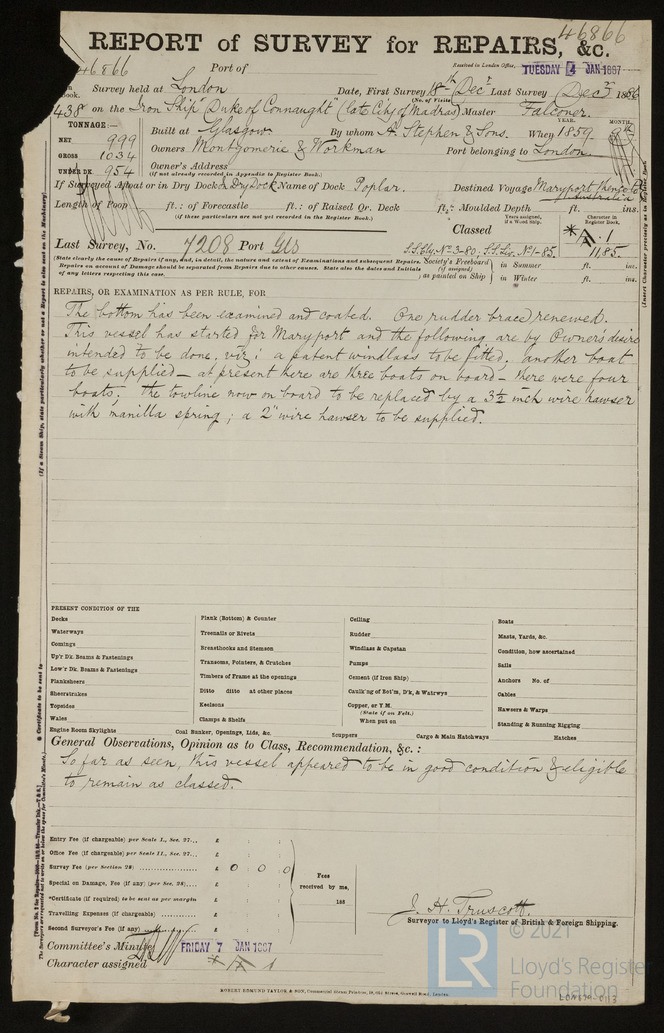 46866
REPORT of SURVEY for REPAIRS, &c.
46866 Port of
Received in London Office, TUESDAY 4 JAN 1887
Survey held at London Date, First Survey 18th Decr Last Survey Dec 1886
(No. of Visits)
438 on the Iron Ship "Duke of Connaught" (late City of Madras) Master Falconer
TONNAGE:
YEAR. MONTH.
NET 999
GROSS 1034
UNDER DK. 954
Built at Glasgow By whom A. Stephen & Sons. When 1859
Owners Montgomerie & Workman Port belonging to London
Owner's Address
(if not already recorded in Appendix to Register Book.)
If Surveyed Afloat or in Dry Dock Dry Dock Name of Dock Poplar. Destined Voyage Maryport thence to Australia
Length of Poop ft.: of Forecastle ft.: of Raised Qr. Deck ft.: Moulded Depth ft. ins.
(if these particulars are not yet recorded in the Register Book.)
Years assigned, if a Wood Ship. Character in Register Book.
Classed A 1
Last Survey, No. 7208 Port Gls S.S. Cly. No 3-80. S.S. Liv. No 1-85. 11,85.
(State clearly the cause of Repairs if any, and, in detail, the nature and extent of Examinations and subsequent Repairs.
Repairs on account of Damage should be separated from Repairs due to other causes. State also the dates and Initials
of any letters respecting this case.
Society's Freeboard (if assigned) as painted on Ship
in Summer ft. ins.
in Winter ft. ins.
REPAIRS, OR EXAMINATION AS PER RULE, FOR
The bottom has been examined and coated. One rudder brace renewed.
This vessel has started for Maryport and the following are by Owners desire
intended to be done, viz; a patent windlass to be fitted, another boat
to be supplied – at present there are three boats on board – there were four
boats. The towline now on board to be replaced by a 3½ inch wire hawser
with manilla spring; a 2" wire hawser to be supplied.
PRESENT CONDITION OF THE
Decks
Waterways
Comings
Up'r Dk. Beams & Fastenings
Low'r Dk. Beams & Fastenings
Planksheers
Sheerstrakes
Topsides
Wales
Engine Room Skylights
Plank (Bottom) & Counter
Treenails or Rivets
Breasthooks and Stemson
Transoms, Pointers, & Crutches
Timbers of Frame at the openings
Ditto ditto at other places
Keelsons
Clamps & Shelfs
Coal Bunker, Openings, Lids, &c.
Ceiling
Rudder
Windlass & Capstan
Pumps
Cement (if Iron Ship)
Caulk'ng of Bot'm, D'k, & Watrwys
Copper, or Y.M.
(State if on Felt.)
When put on
Scuppers
Cargo & Main Hatchways
Boats
Masts, Yards, &c.
Condition, how ascertained
Sails
Anchors No. of
Cables
Hawsers & Warps
Standing & Running Rigging
Hatches
General Observations, Opinion as to Class, Recommendation, &c.:
So far as seen, this vessel appeared to be in good condition & eligible
to remain as classed.
Entry Fee (if chargeable) per Scale I., Sec. 27... £
Office Fee (if chargeable) per Scale II., Sec. 27... £
Survey Fee (per Section 28) £ 0 0 0
Special on Damage, Fee (if any) (per Sec. 28) £
*Certificate (if required) to be sent as per margin £
Travelling Expenses (if chargeable) £
Second Surveyor's Fee (if any) £
Fees received by me, 188
J. H. Truscott.
Surveyor to Lloyd's Register of British & Foreign Shipping.
Committee's Minute FRIDAY 7 JAN 1887
Character assigned A 1
ROBERT EDMUND TAYLOR, & SON,
LR
© 2021
Lloyd's Register
Foundation